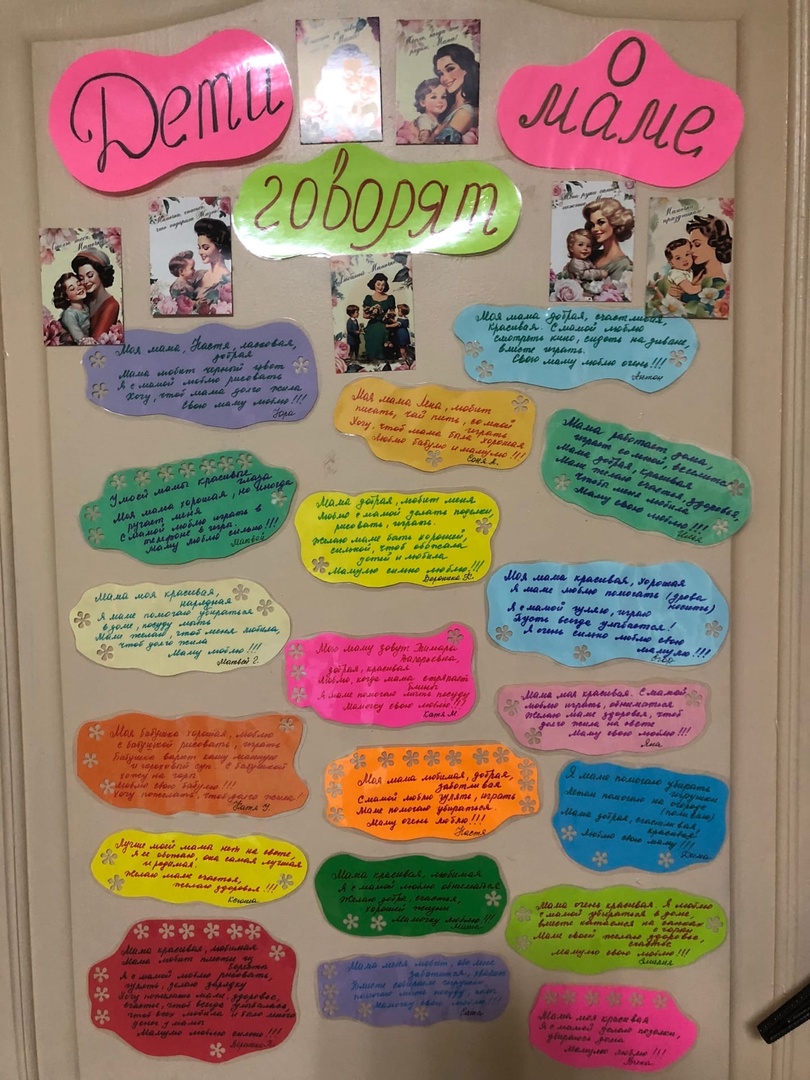 Дети
говорят
о
маме
Моя мама, Настя, ласковая,
добрая
Мама любит чёрный цвет
Я с мамой люблю рисовать
Хочу, чтоб мама долго жила
свою маму люблю!!!
Юра
Моя мама добрая, счастливая,
красивая. С мамой люблю
смотреть кино, сидеть на диване,
вместе играть.
Свою маму люблю очень!!!
Антон
Моя мама Яна, любит
писать, чай пить, со мной
играть
Хочу, чтоб мама была хорошая
Люблю бабулю и мамулю!!!
Соня А.
Мама работает дома,
играет со мной, веселится
Мама добрая, красивая
Маме желаю счастья, здоровья,
чтобы меня любила
Маму свою люблю!!!
Илья
У моей мамы красивые глаза
Моя мама хорошая, но иногда
ругает меня
С мамой люблю играть в
телефоне в игра.
Маму люблю сильно!!!
Матвей
Мама добрая, любит меня
Люблю с мамой делать поделки,
рисовать, играть.
Желаю маме быть хорошей,
сильной, чтоб обожала
детей и любила
Мамулю сильно люблю!!!
Вероника К.
Моя мама красивая, хорошая
Я маме люблю помогать (дрова
носить)
Я с мамой гуляю, играю
Пусть всегда улыбается!
Я очень сильно люблю свою
мамулю!!!
Мама моя красивая,
нарядная
Я маме помогаю убираться
в доме, посуду мыть
Маме желаю, чтоб меня любила,
чтоб долго жила
Маму люблю!!!
Матвей Г.
Мою маму зовут Тамара
Валерьевна,
добрая, красивая
Люблю, когда мама стряпает
блины
Я маме помогаю мыть посуду
Мамочку свою люблю!!!
Катя М.
Мама моя красивая. С мамой
люблю играть, обниматься
Желаю маме здоровья, чтоб
долго жила на свете
Маму свою люблю!!!
Яна
Моя бабушка хорошая, люблю
с бабушкой рисовать, играть
Бабушка варит кашу манную
и гороховый суп. С бабушкой
хожу на
Люблю свою бабулю!!!
Хочу пожелать, чтоб долго жила!
Катя У.
Моя мама любимая, добрая,
заботливая
С мамой люблю гулять, играть
Маме помогаю убираться.
Маму очень люблю!!!
Настя
Я маме помогаю убирать
игрушки
Маме помогаю на огороде
(поливаю)
Мама добрая, счастливая,
красивая!
Люблю свою маму!!!
Лучше моей мамы нет на свете,
Я её обожаю, она самая лучшая
и родимая.
Желаю маме счастья,
желаю здоровья!!!
Ксюша
Мама красивая, любимая
Я с мамой люблю обниматься
Желаю добра, счастья,
хорошей жизни
Мамочку люблю!!!
Маша
Мама очень красивая. Я люблю
с мамой убираться в доме,
вместе кататься на санках
с горки
Маме своей желаю здоровья,
счастья
Мамулю свою люблю!!!
Мама красивая, любимая
Мама любит
Я с мамой люблю рисовать,
гулять, делаю зарядку
Хочу пожелать маме, здоровья,
счастья, чтоб всегда улыбалась,
чтоб всех любила и было много
денег у мамы
Мамулю люблю сильно!!!
Мама меня любит, обо мне
заботится,
Вместе собираем игрушки
помогаю мыть посуду,
Мамочку свою люблю!!!
Мама моя красивая
Я с мамой делаю поделки,
убираюсь дома
Мамулю люблю!!!